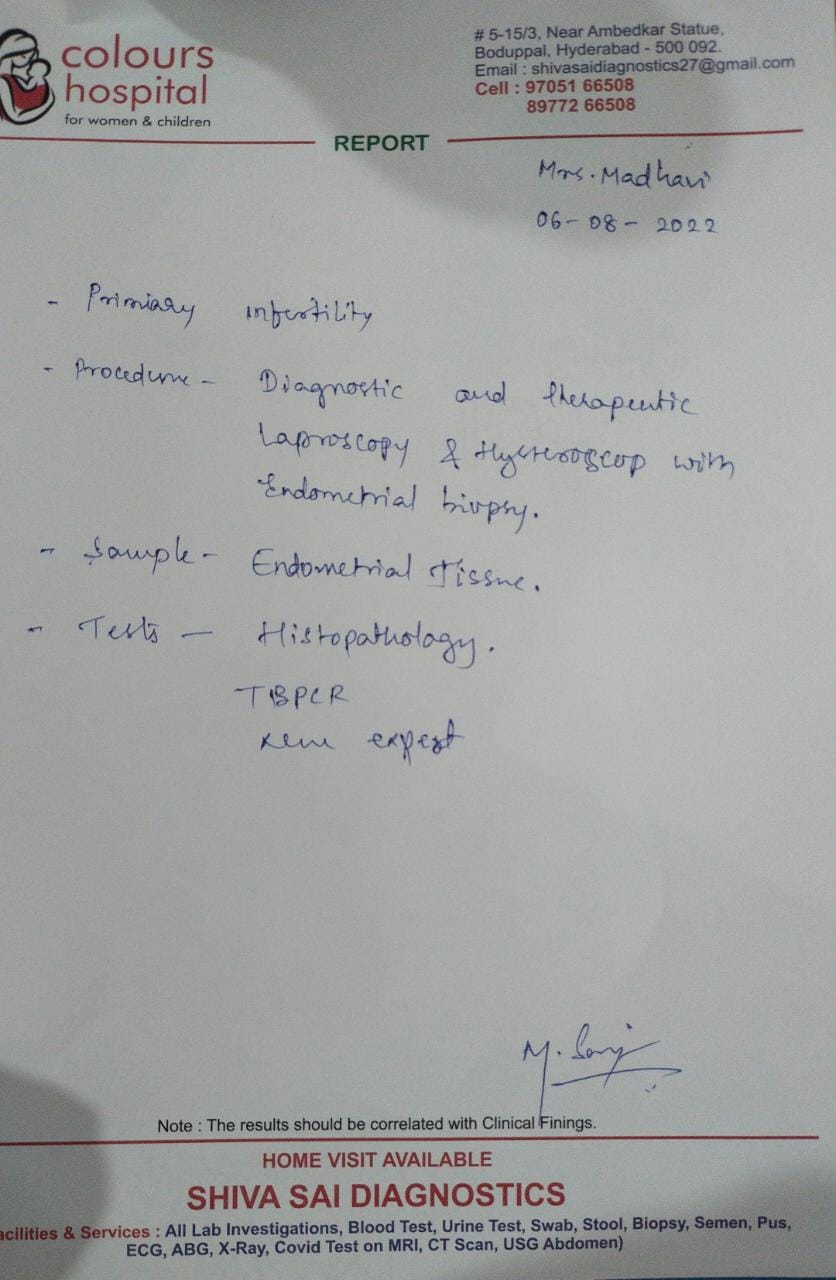 colours
hospital
for women & children
# 5-15/3, Near Ambedkar Statue,
Boduppal, Hyderabad - 500 092.
Email : shivasaidiagnostics27@gmail.com
Cell : 97051 66508
89772 66508
REPORT
Mrs. Madhavi
06-08-2022
- Primiary infertility
- Procedure - Diagnostic and therapeutic
Laproscopy & Hysteroscop with
Endometrial biopsy.
- Sample - Endometrial Tissue.
- Tests - Histopathology.
TBPCR
expert
M.
Note : The results should be correlated with Clinical Finings.
HOME VISIT AVAILABLE
SHIVA SAI DIAGNOSTICS
acilities & Services : All Lab Investigations, Blood Test, Urine Test, Swab, Stool, Biopsy, Semen, Pus,
ECG, ABG, X-Ray, Covid Test on MRI, CT Scan, USG Abdomen)